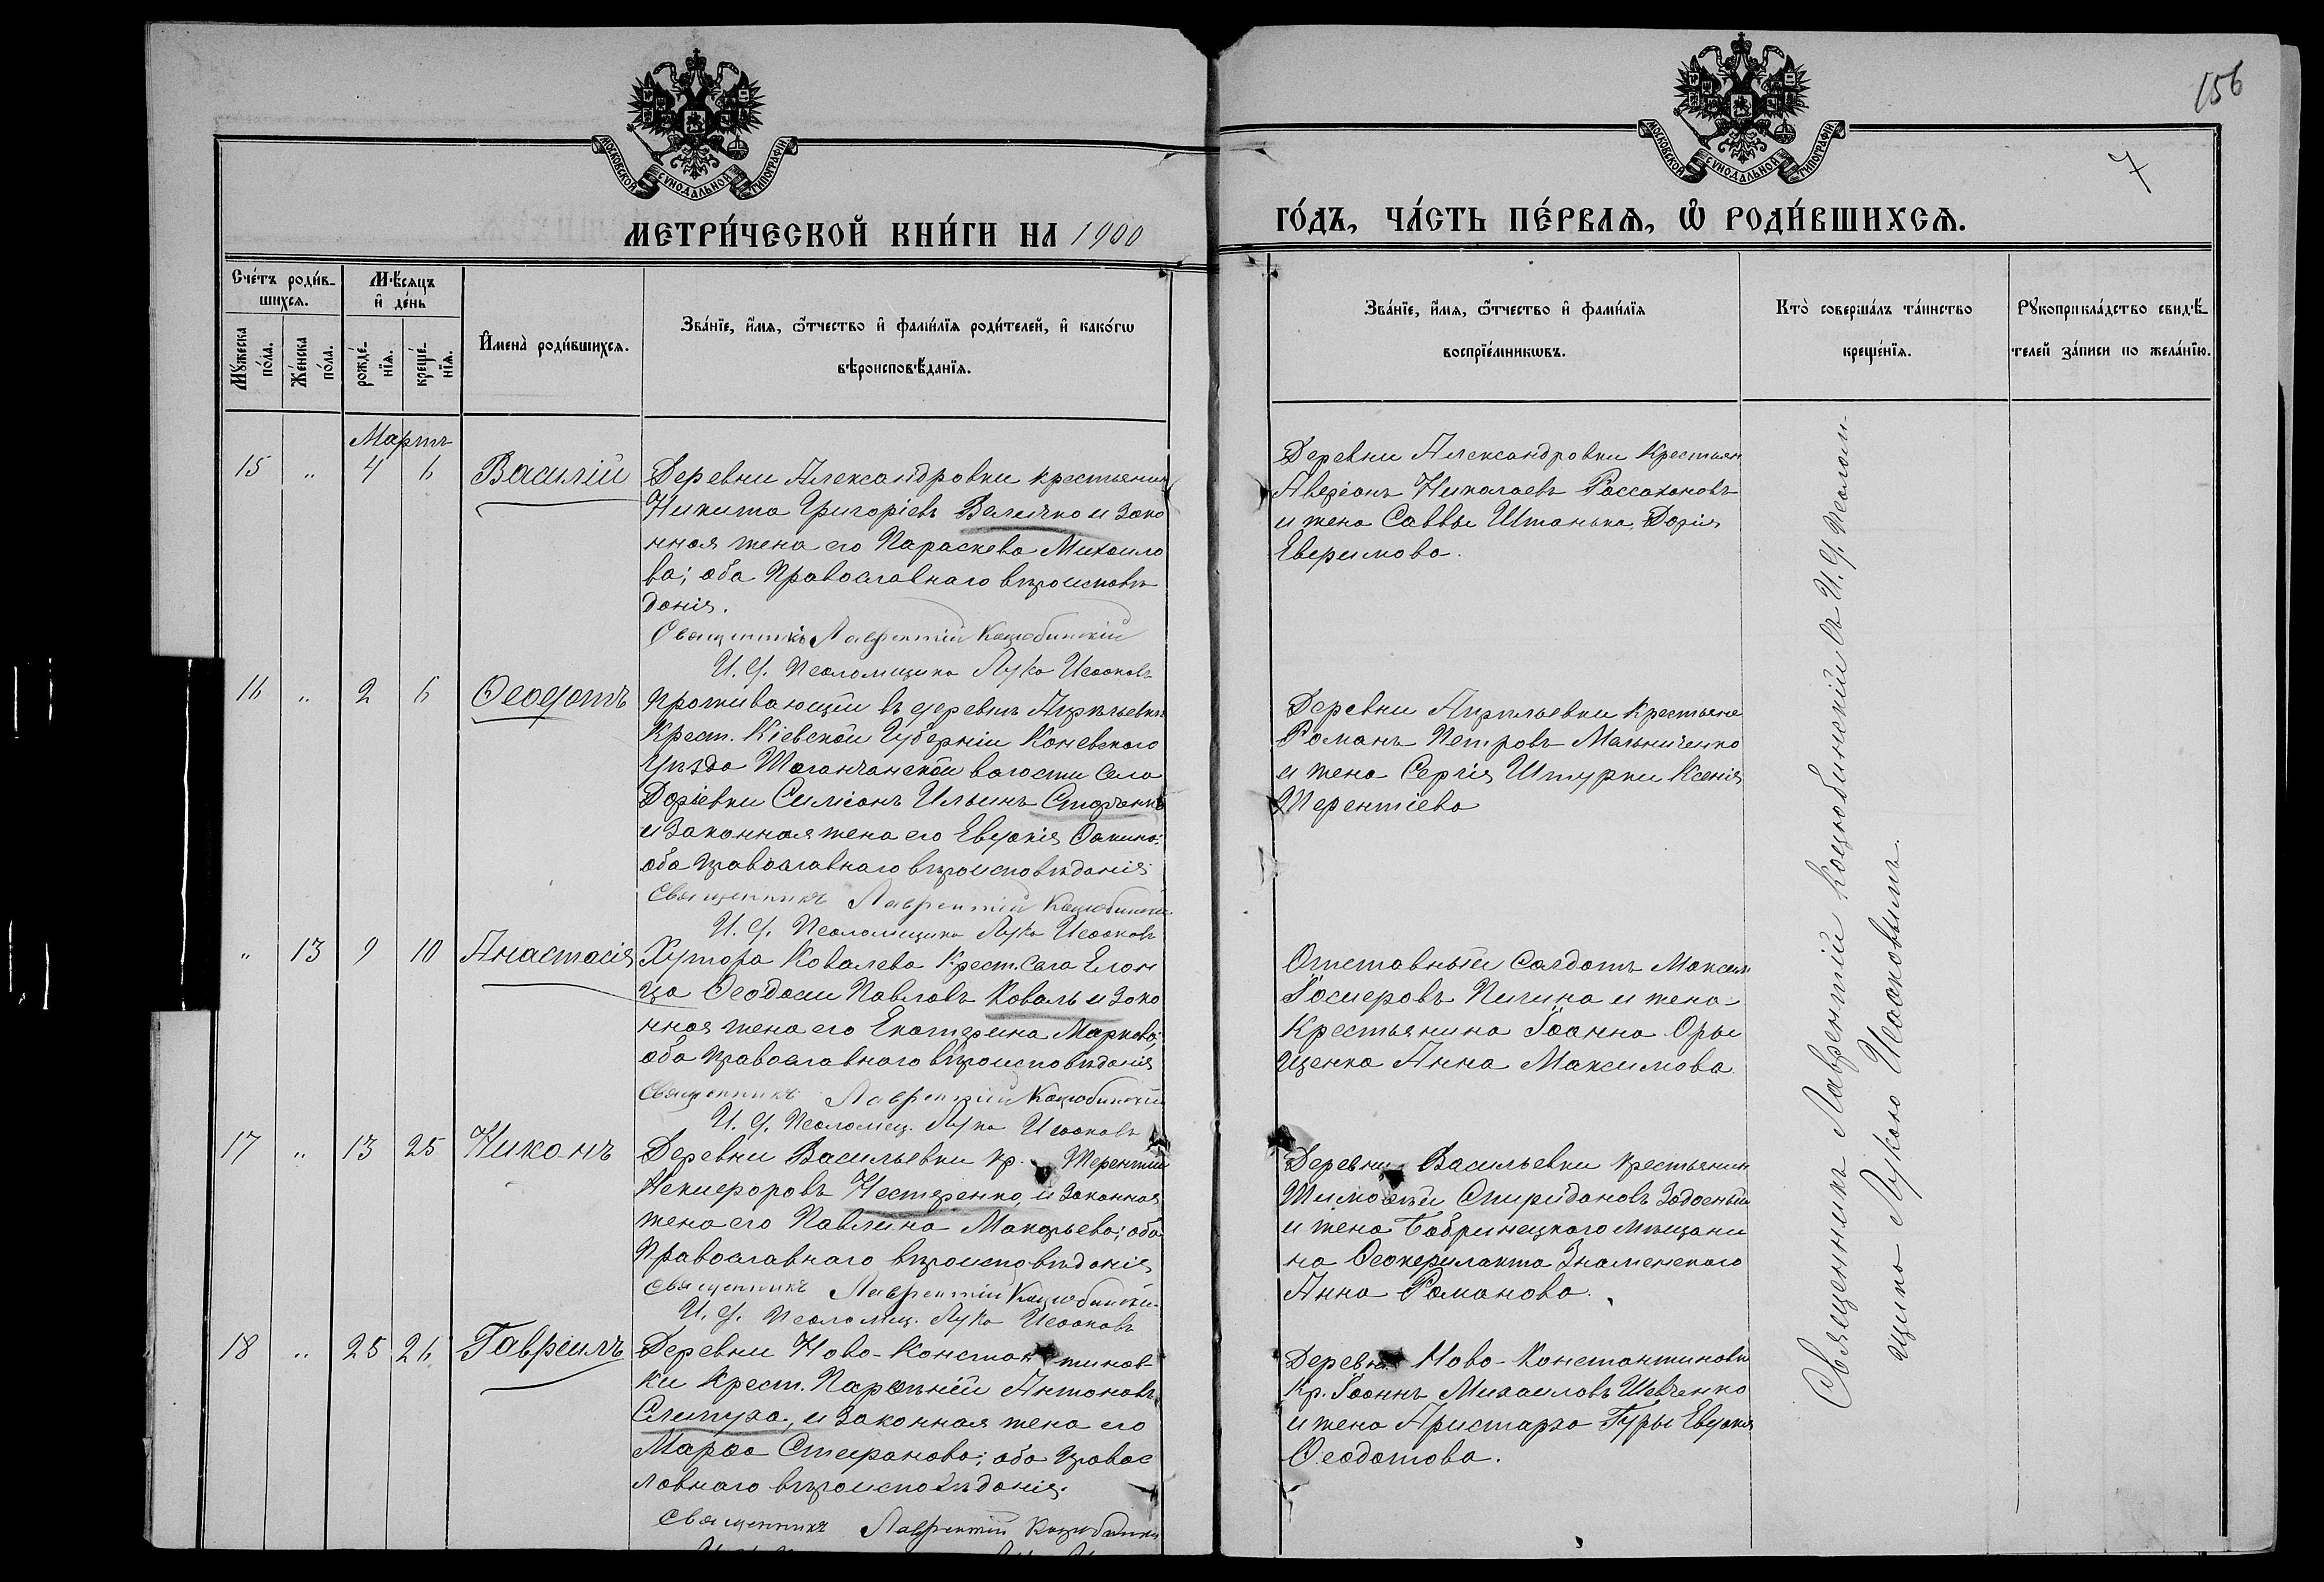 156
7
МОСКОВСКОЙ СѴНОДАЛЬНОЙ ТИПОГРАФІИ
МОСКОВСКОЙ СѴНОДАЛЬНОЙ ТИПОГРАФІИ
МЕТРИ́ЧЕСКОЙ КНИ́ГИ НА 1900
ГО́ДЪ, ЧА́СТЬ ПЕ́РВАѦ, Ѽ РОДИ́ВШИХСѦ.
Сче́тъ роди́в-
шихсѧ.
Мꙋжеска по́ла.
Же́нска по́ла.
Мѣ́сѧцъ
и҆ де́нь
рожде́-
нїѧ.
креще́-
нїѧ.
И҆мена̀ роди́вшихсѧ.
Зва́нїе, и҆́мѧ, ѻ҆́тчество и҆ фамѝлїѧ роди́телей, и҆ како́гѡ
вѣроисповѣ́данїѧ.
Зва́нїе, и҆́мѧ, ѻ҆́тчество и҆ фами́лїѧ
воспрїе́мникѡвъ.
Кто̀ соверша́лъ та́инство
креще́нїѧ.
Рꙋкоприкла́дство свидѣ́-
телей за́писи по жела́нїю.
Мартъ
15 " 4 6 Василій
Деревни Александровки крестьянинъ
Никита Григоріевъ Величко и зако
нная жена его Параскева Михаило
ва; оба Православнаго вѣроисповѣ
данія.
Священникъ Лаврентій Коцюбинскій
И. д. Псаломщика Лука Исааковъ
Деревни Александровки Крестьян
Николаевъ
и жена Саввы Штанька, Дарія
Евфимова.
16 " 2 6 Ѳеодотъ
Проживающій въ деревнѣ
Крест. Кіевской Губерніи Каневскаго
Уѣзда волости села
Даріевки Симіонъ Ильинъ
и законная жена его Евдокія
оба православнаго вѣроисповѣданія
Священникъ Лаврентій Коцюбинскій
И. д. Псаломщика Лука Исааковъ
Деревни Крестьяне
Романъ Петровъ Мельниченко
и жена Сергія Штурки Ксенія
Терентіева
" 13 9 10 Анастасія
Хутора Ковалева Крест. Села Елан
ца Ѳеодосій Павловъ Коваль и зако
нная жена его Екатерина Маркова;
оба православнаго вѣроисповѣданія
Священникъ Лаврентій Коцюбинскій
И. д. Псаломщ. Лука Исааковъ
Отставный Солдатъ Максим
и жена
Крестьянина Іоанна Оры
щенка Анна Максимова.
17 " 13 25 Никонъ
Деревни Васильевки кр. Терентій
Никифоровъ Нестеренко, и законная
жена его Павлина Макарьева; оба
Православнаго вѣроисповѣданія
Священникъ Лаврентій Коцюбинскій
И. д. Псаломщ. Лука Исааковъ
Деревни Васильевки крестьянин
Тимоѳей Спиридоновъ
и жена Бобринецкаго мѣщани
на Ѳеофилакта Знаменскаго
Анна Романова.
18 " 25 26 Гавріилъ
Деревни Ново-Константинов
ки Крест. Парѳеній Антоновъ
Слипуха, и законная жена его
Марѳа Стефанова; оба правос
лавнаго вѣроисповѣданія.
Священникъ Лаврентій Коцюбинскій
Деревни Ново-Константиновки
Кр. Іоаннъ Михаиловъ Шевченко
и жена Аристарха Гуры Евдокія
Ѳеодотова.
Священникъ Лаврентій Коцюбинскій съ И. д. псалом-
щика Лукою Исааковымъ.